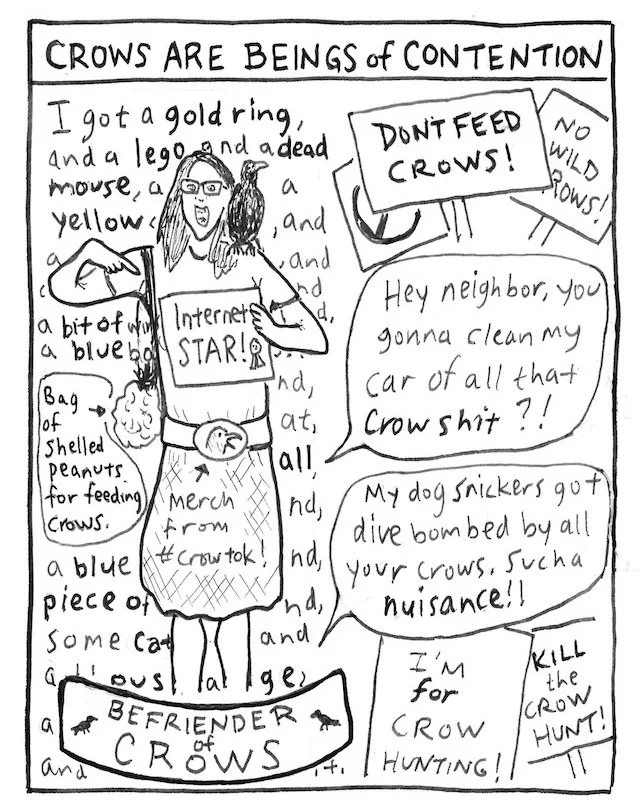 CROWS ARE BEINGS of CONTENTION
I got a gold ring,
and a lego and a dead
mouse, a a
yellow , and
, and
nd
a bit of
a blue
nd,
at,
all,
nd,
a blue nd,
piece of nd,
some and
a
a
and
Internet
STAR!
Bag
of
shelled
peanuts
for feeding
crows.
Merch
from
#Crowtok!
BEFRIENDER
of
CROWS
DON'T FEED
CROWS!
NO
WILD
ROWS!
Hey neighbor, you
gonna clean my
car of all that
Crow shit ?!
My dog Snickers got
dive bombed by all
your crows. Such a
nuisance!!
I'M
for
CROW
HUNTING!
KILL
the
CROW
HUNT!